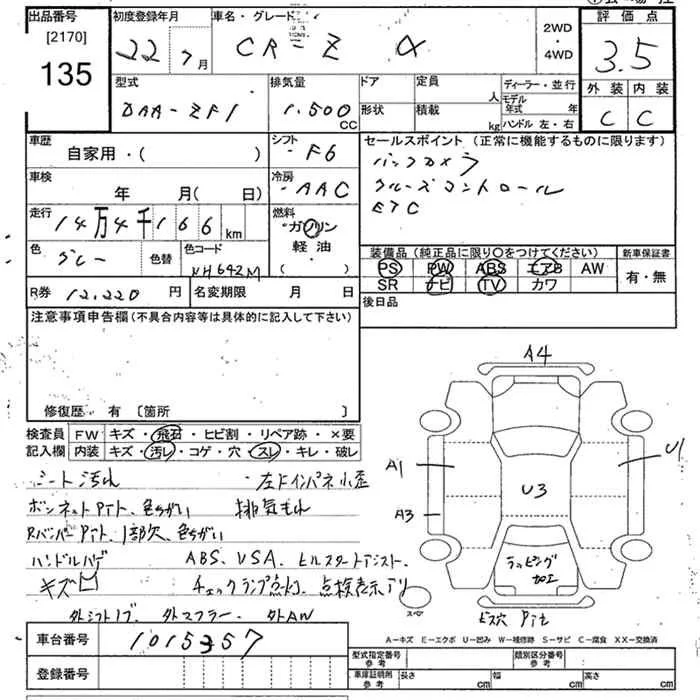 出品番号
[2170]
135
初度登録年月
22 7月
車名・グレード
CR-Z α
2WD
・
4WD
評価点
3.5
外装 内装
C C
型式
DAA-ZF1
排気量
1,500
CC
ドア
形状
定員
人
積載
kg
ディーラー・並行
モデル年式 年
ハンドル 左・右
車歴
自家用・( )
シフト
F6
車検
年 月( 日)
冷房
AAC
走行
14万4千166 km
燃料
ガソリン
軽油・
( )
色
グレー
色替
色コード
NH642M
セールスポイント (正常に機能するものに限ります)
バックカメラ
クルーズコントロール
ETC
装備品 (純正品に限り○をつけてください)
PS PW ABS エアB AW
SR ナビ TV カワ
新車保証書
有・無
後日品
R券 12,220 円
名変期限 月 日
注意事項申告欄 (不具合内容等は具体的に記入して下さい)
修復歴・有 [箇所 ]
検査員
記入欄
FW キズ・飛石・ヒビ割・リペア跡・×要
内装 キズ・汚レ・コゲ・穴・スレ・キレ・破レ
シート汚れ 左ドインパネ小歪
ボンネットPit、色ちがい 排気もれ
RバンパーPit、1部欠、色ちがい
ハンドルハゲ ABS、VSA、ヒルスタートアシスト、
キズ凹 チェックランプ点灯、点検表示アリ
外シフトノブ、外マフラー、外AW
A4
A1
A3
U3
U1
ラッピング
加工
スペア
ビス穴 Pit
A-キズ E-エクボ U-凹み W-補修跡 S-サビ C-腐食 XX-交換済
車台番号
1015357
登録番号
型式指定番号
参考
類別区分番号
参考
車庫証明用
参考
長さ cm
幅 cm
高さ cm